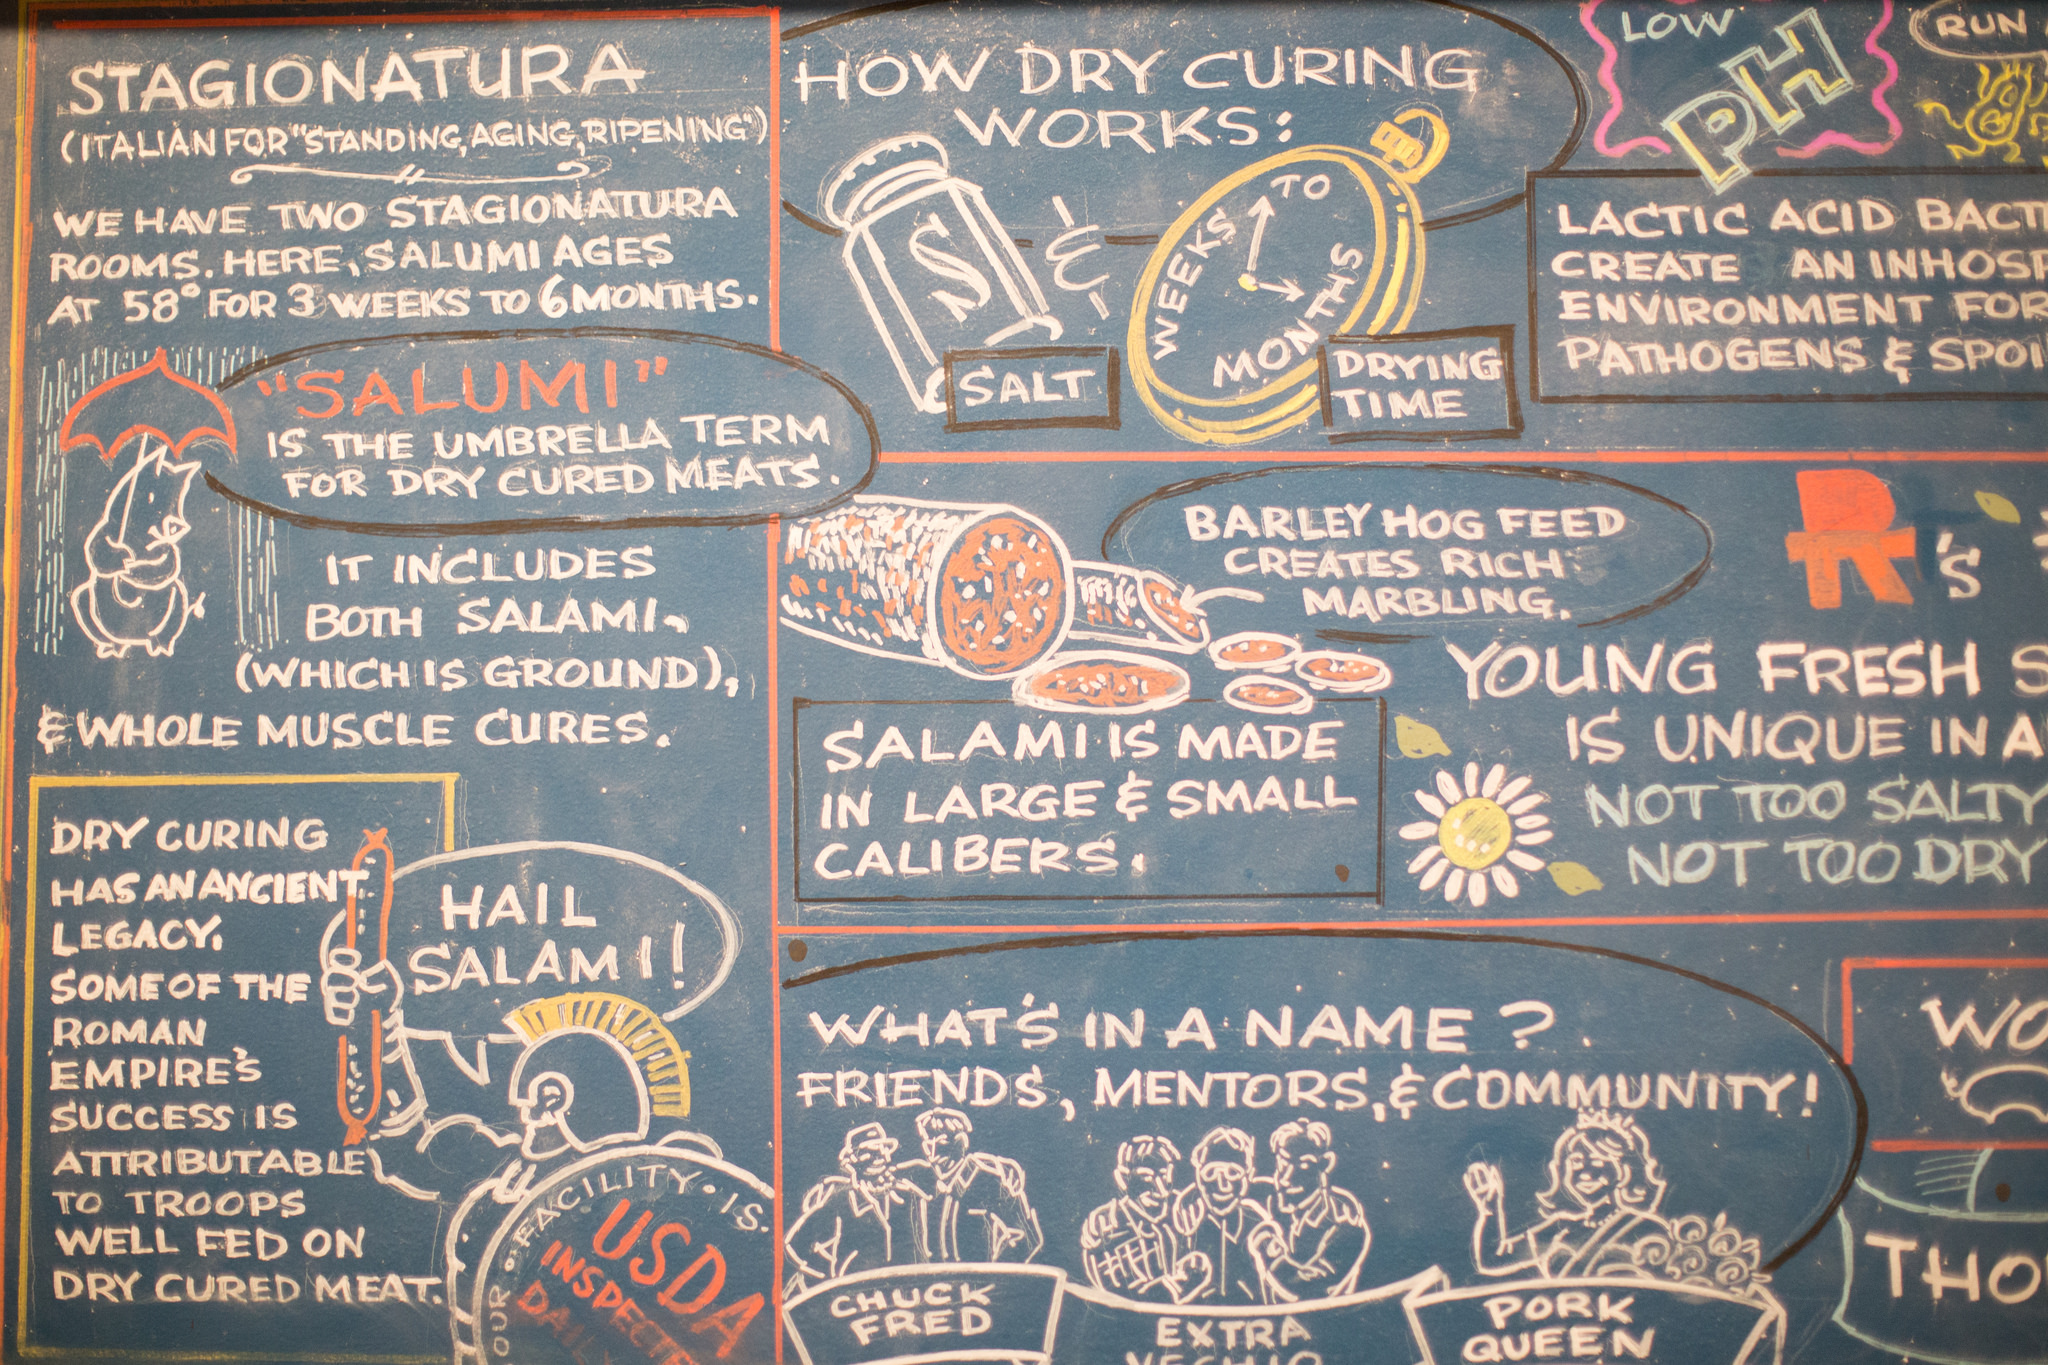 STAGIONATURA
(ITALIAN FOR "STANDING, AGING, RIPENING")
WE HAVE TWO STAGIONATURA
ROOMS. HERE, SALUMI AGES
AT 58° FOR 3 WEEKS TO 6 MONTHS.
"SALUMI"
IS THE UMBRELLA TERM
FOR DRY CURED MEATS.
IT INCLUDES
BOTH SALAMI,
(WHICH IS GROUND),
& WHOLE MUSCLE CURES.
DRY CURING
HAS AN ANCIENT
LEGACY.
SOME OF THE
ROMAN
EMPIRE'S
SUCCESS IS
ATTRIBUTABLE
TO TROOPS
WELL FED ON
DRY CURED MEAT.
HAIL
SALAMI!
OUR FACILITY IS
USDA
INSPECTE
DAILY
HOW DRY CURING
WORKS:
S
&
WEEKS TO
MONTHS
SALT
DRYING
TIME
LOW
PH
RUN
LACTIC ACID BACT
CREATE AN INHOSP
ENVIRONMENT FOR
PATHOGENS & SPOI
BARLEY HOG FEED
CREATES RICH
MARBLING.
SALAMI IS MADE
IN LARGE & SMALL
CALIBERS.
R'S
YOUNG FRESH S
IS UNIQUE IN A
NOT TOO SALTY
NOT TOO DRY
WHAT'S IN A NAME?
FRIENDS, MENTORS, & COMMUNITY!
CHUCK
FRED
EXTRA
VECHIO
PORK
QUEEN
WO
THO